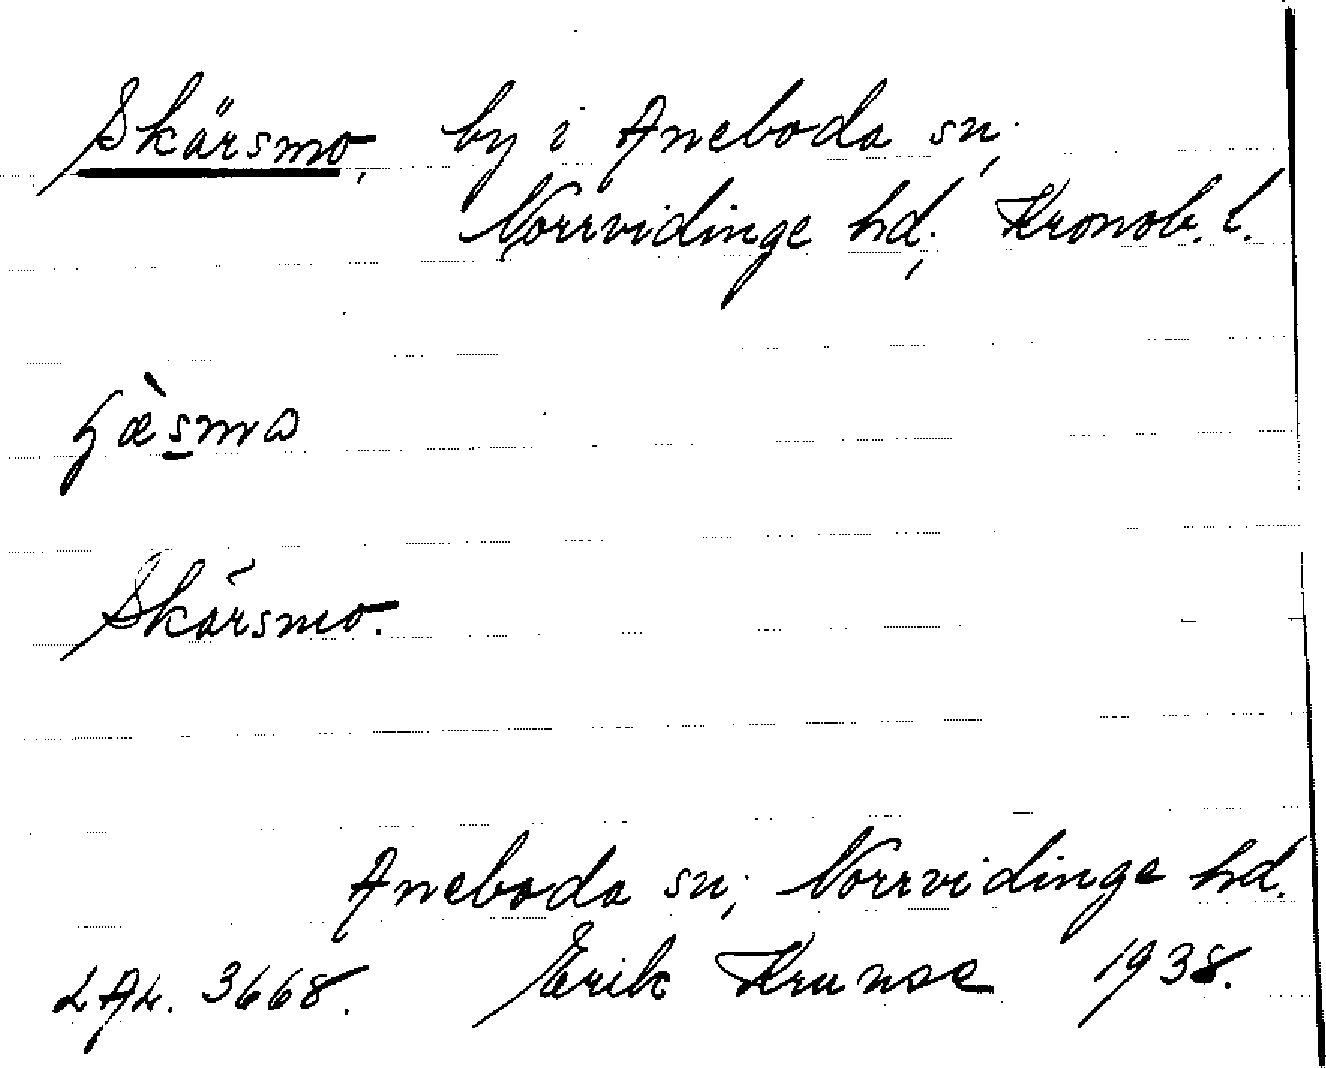 Skärsmo, by i Aneboda sn.,
Norrvidinge hd., Kronob. l.
Skärsmo.
Aneboda sn; Norrvidinge hd.
LAL. 3668. Erik Krunse 1938.